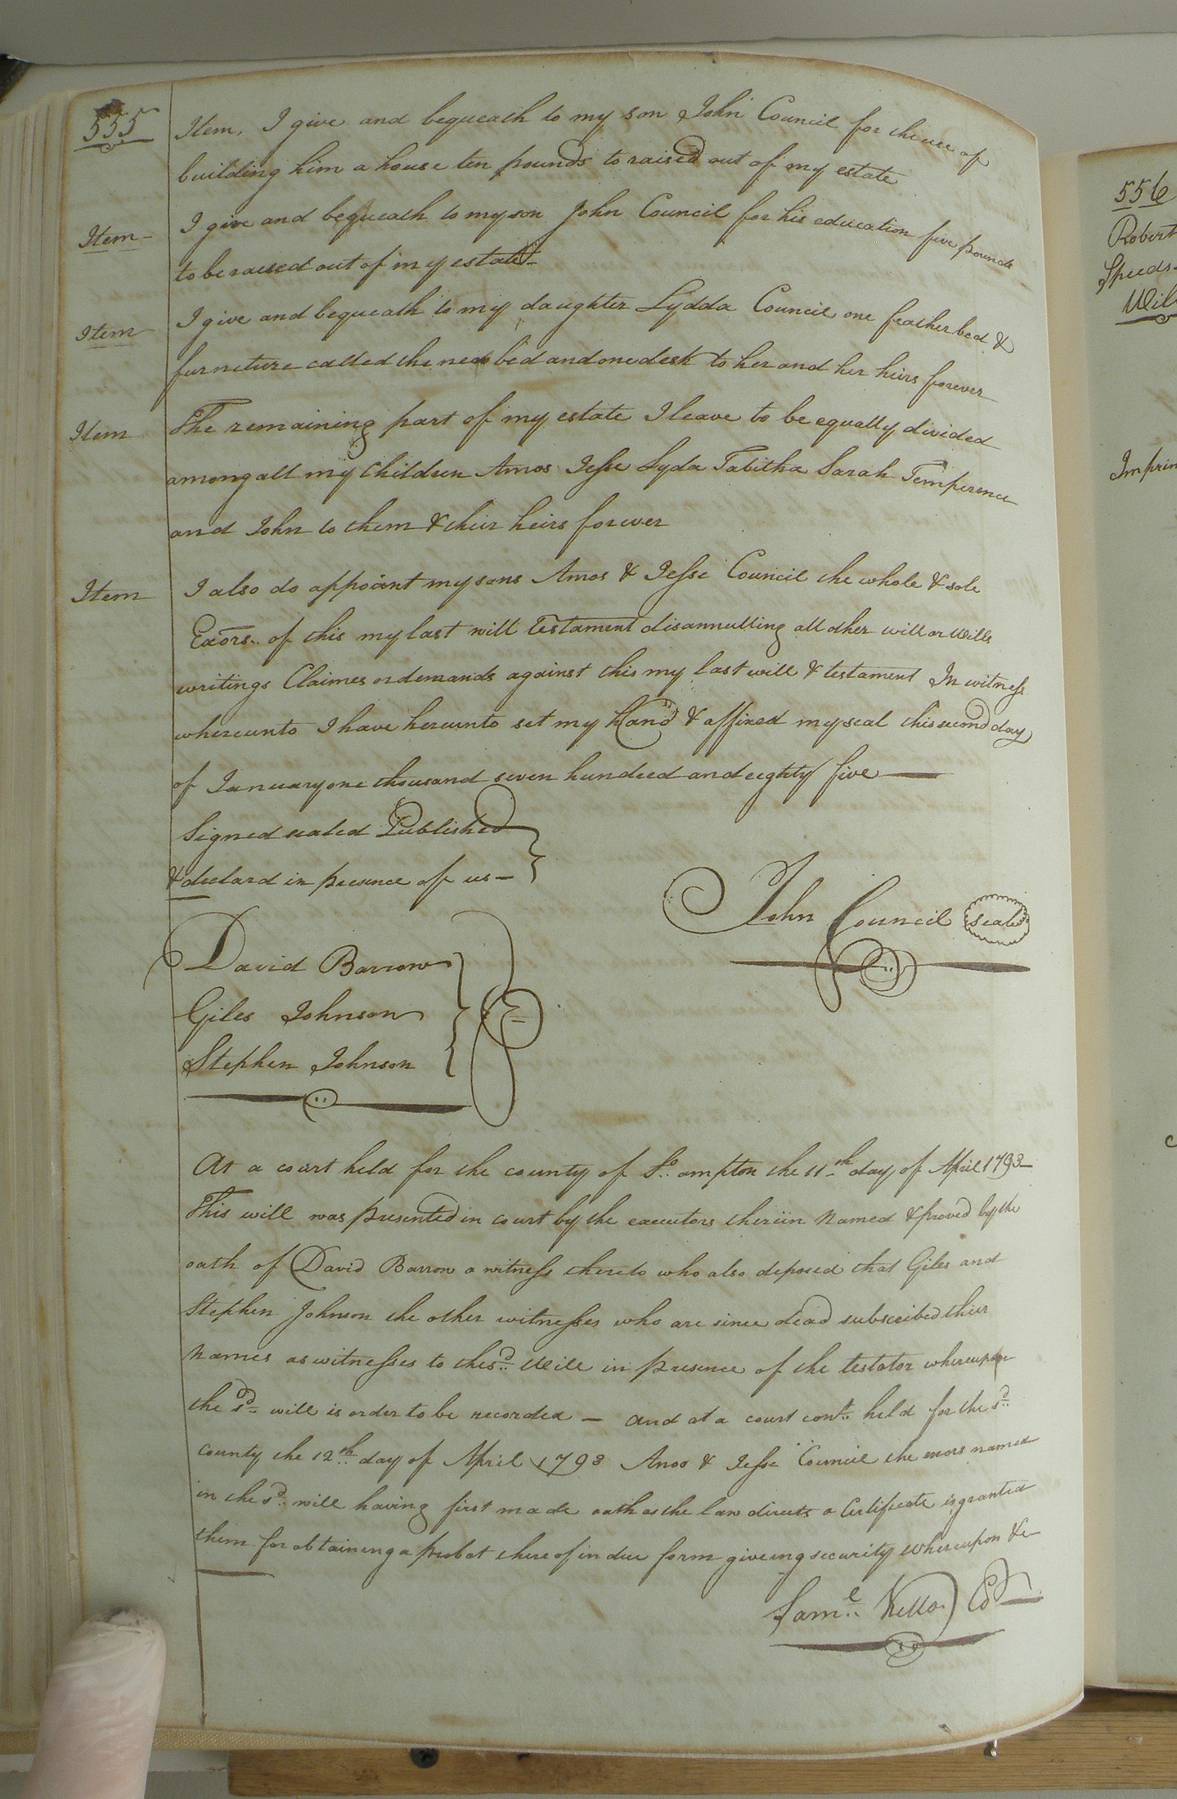 555
Item, I give and bequeath to my son John Council for the use of
building him a house ten pounds to raised out of my estate
Item - I give and bequeath to my son John Council for his education five pounds
to be raised out of my estate -
Item I give and bequeath to my daughter Lydda Council one feather bed &
furneture called the new bed and one desk to her and her heirs forever
Item The remaining part of my estate I leave to be equally divided
among all my Children Amos Jesse Lyda Tabitha Sarah Temperence
and John to them & their heirs forever
Item I also do appoint my sons Amos & Jesse Council the whole & sole
Exors. of this my last will Testament disannulling all other will or Wills
writings Claimes or demands against this my last will & testament In witness
whereunto I have hereunto set my hand & affixed my seal this second day
of January one thousand seven hundred and eighty five —
Signed sealed Published
& declard in presence off us -
John Council seal
David Barrow
Giles Johnson
Stephen Johnson
At a court held for the county of So. ampton the 11th day of April 1793
This will was presented in court by the executors theriin named & proved by the
oath of David Barrow a witness thereto who also deposed that Giles and
Stephen Johnson the other witnesses who are since dead subscribed their
names as witnesses to the sd. Will in presence of the testator whereupon
the sd. will is order to be recorded — and at a court cont. held for the sd.
county the 12th day of April 1793 Amos & Jesse Council the exors named
in the sd. will having first made oath as the law directs a Certificate is granted
them for obtaining a probat thereof in due form giveing security Whereupon &c
Saml. Kello Cl
556
Robert
Speeds
Wil
Imprim